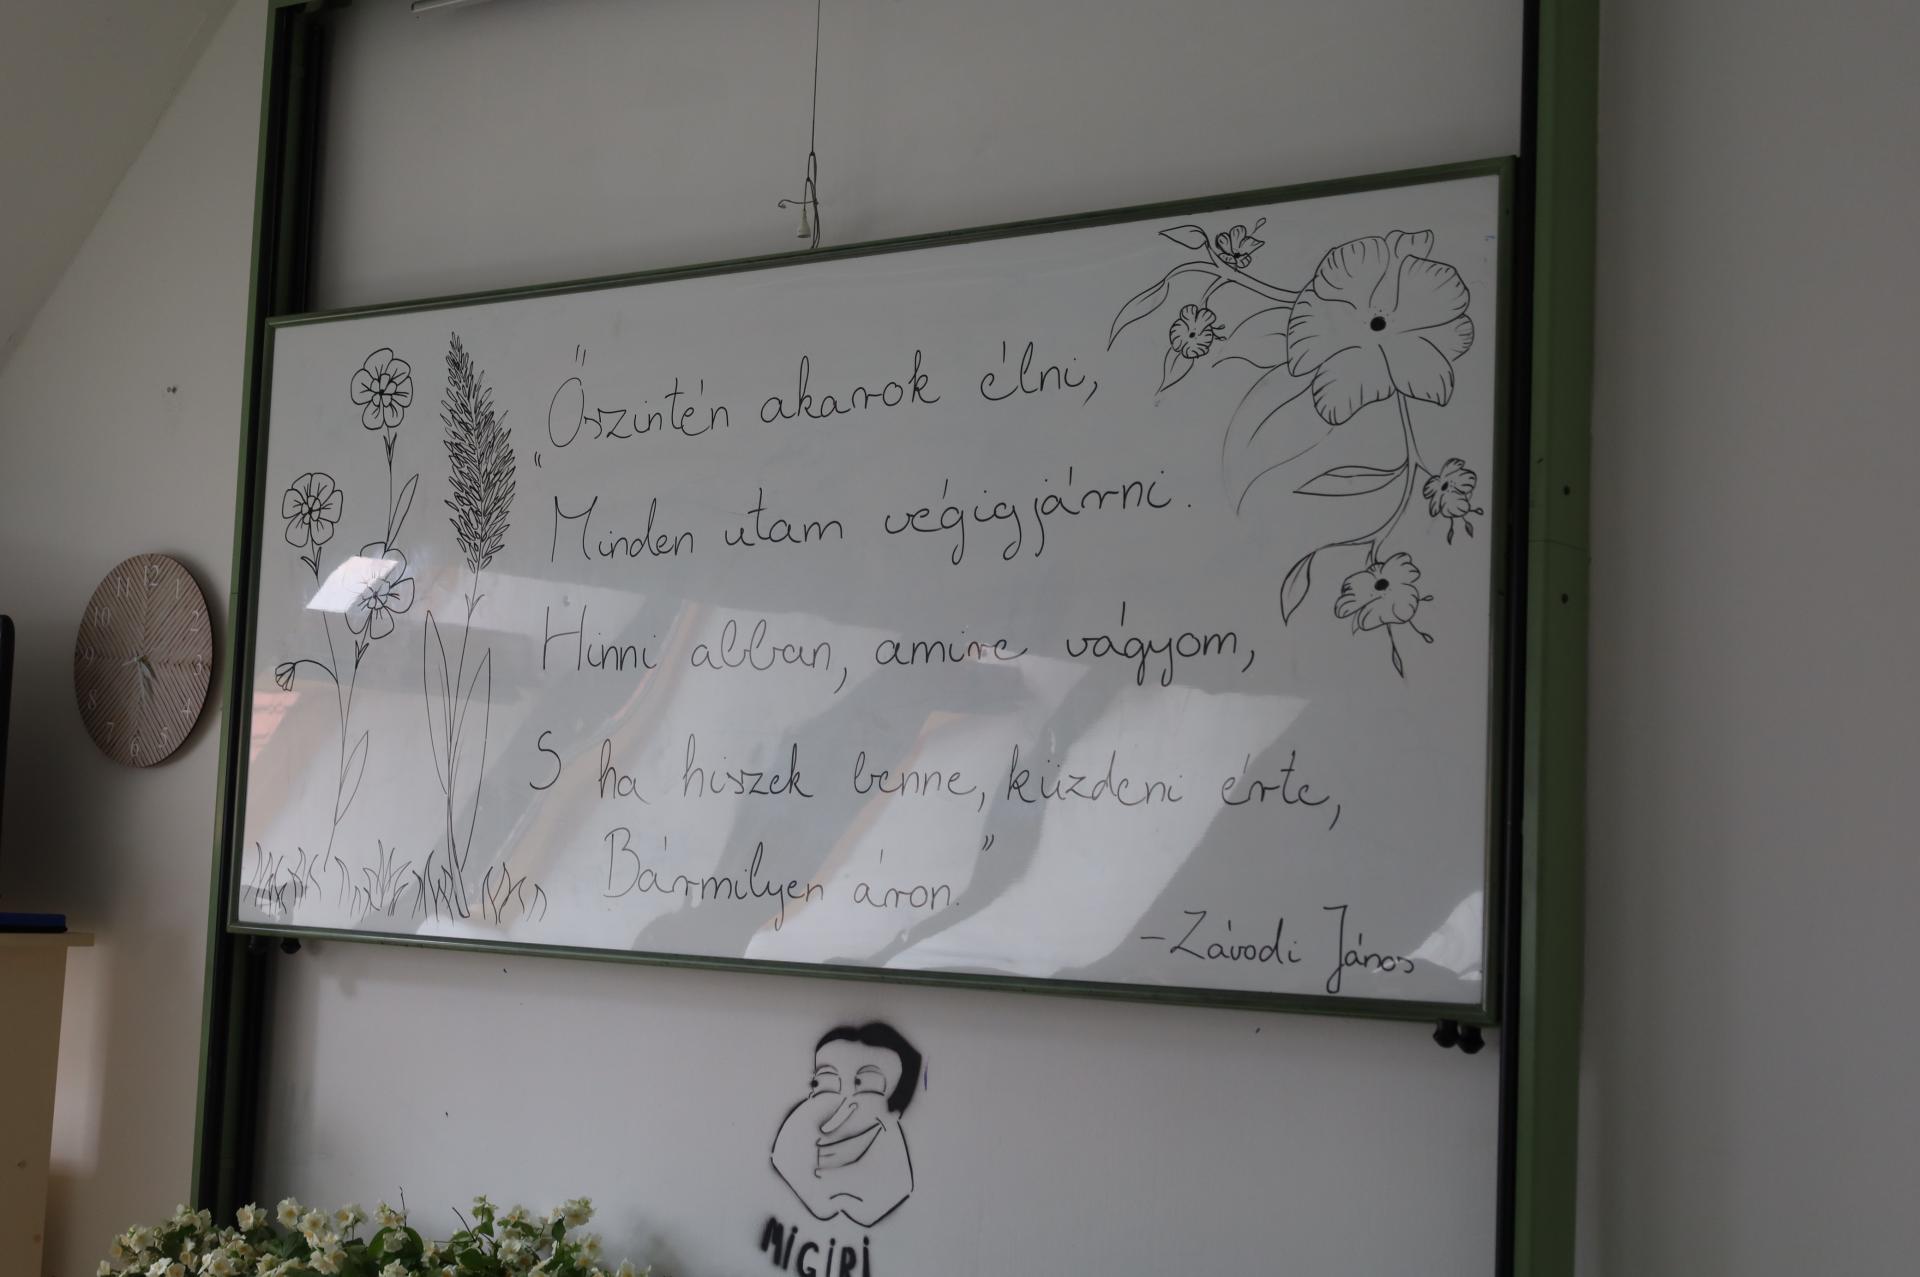 „Őszintén akarok élni,
Minden utam végigjárni.
Hinni abban, amire vágyom,
S ha hiszek benne, küzdeni érte,
Bármilyen áron.”
-Závodi János
MiGiRi
12
1
2
3
4
5
6
7
8
9
10
11